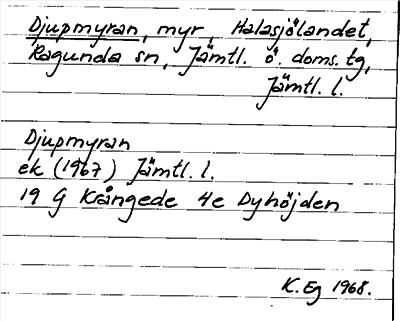 Djupmyran, myr, Halasjölandet,
Ragunda sn, Jämtl. ö. doms. tg,
Jämtl. l.
Djupmyran
ek (1967) Jämtl. l.
19 G Krångede 4e Dyhöjden
K. Eg 1968.